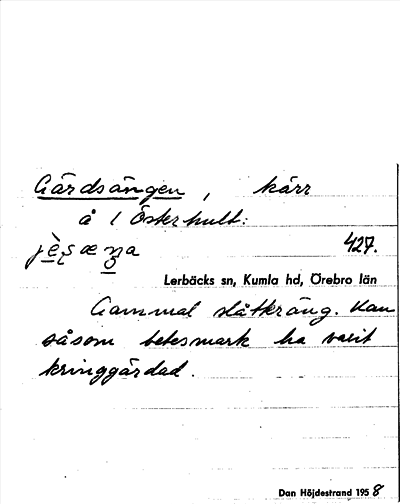 Gärdsängen, kärr
å 1 Österhult:
427.
Lerbäcks sn, Kumla hd, Örebro län
Gammal slåtkräng. Kan
såsom betesmark ha varit
kringgärdad.
Dan Höjdestrand 1958